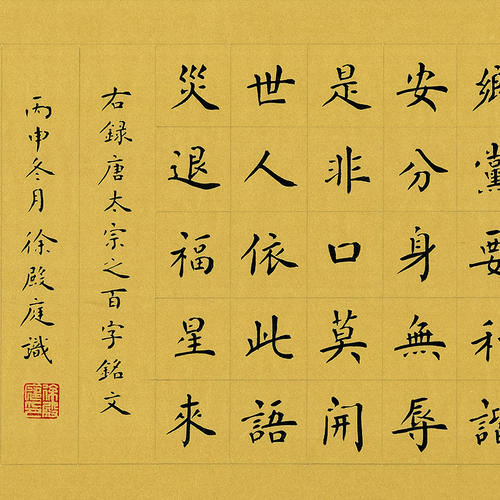 鄉黨要和諧
安分身無辱
是非口莫開
世人依此語
災退福星來
右錄唐太宗之百字銘文
丙申冬月徐殿庭識